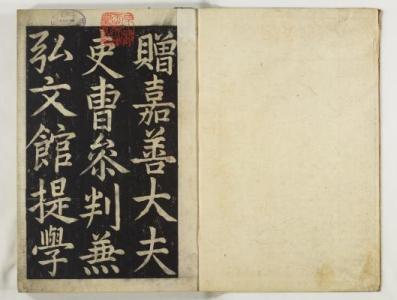 贈嘉善大夫
吏曺叅判兼
弘文館提學